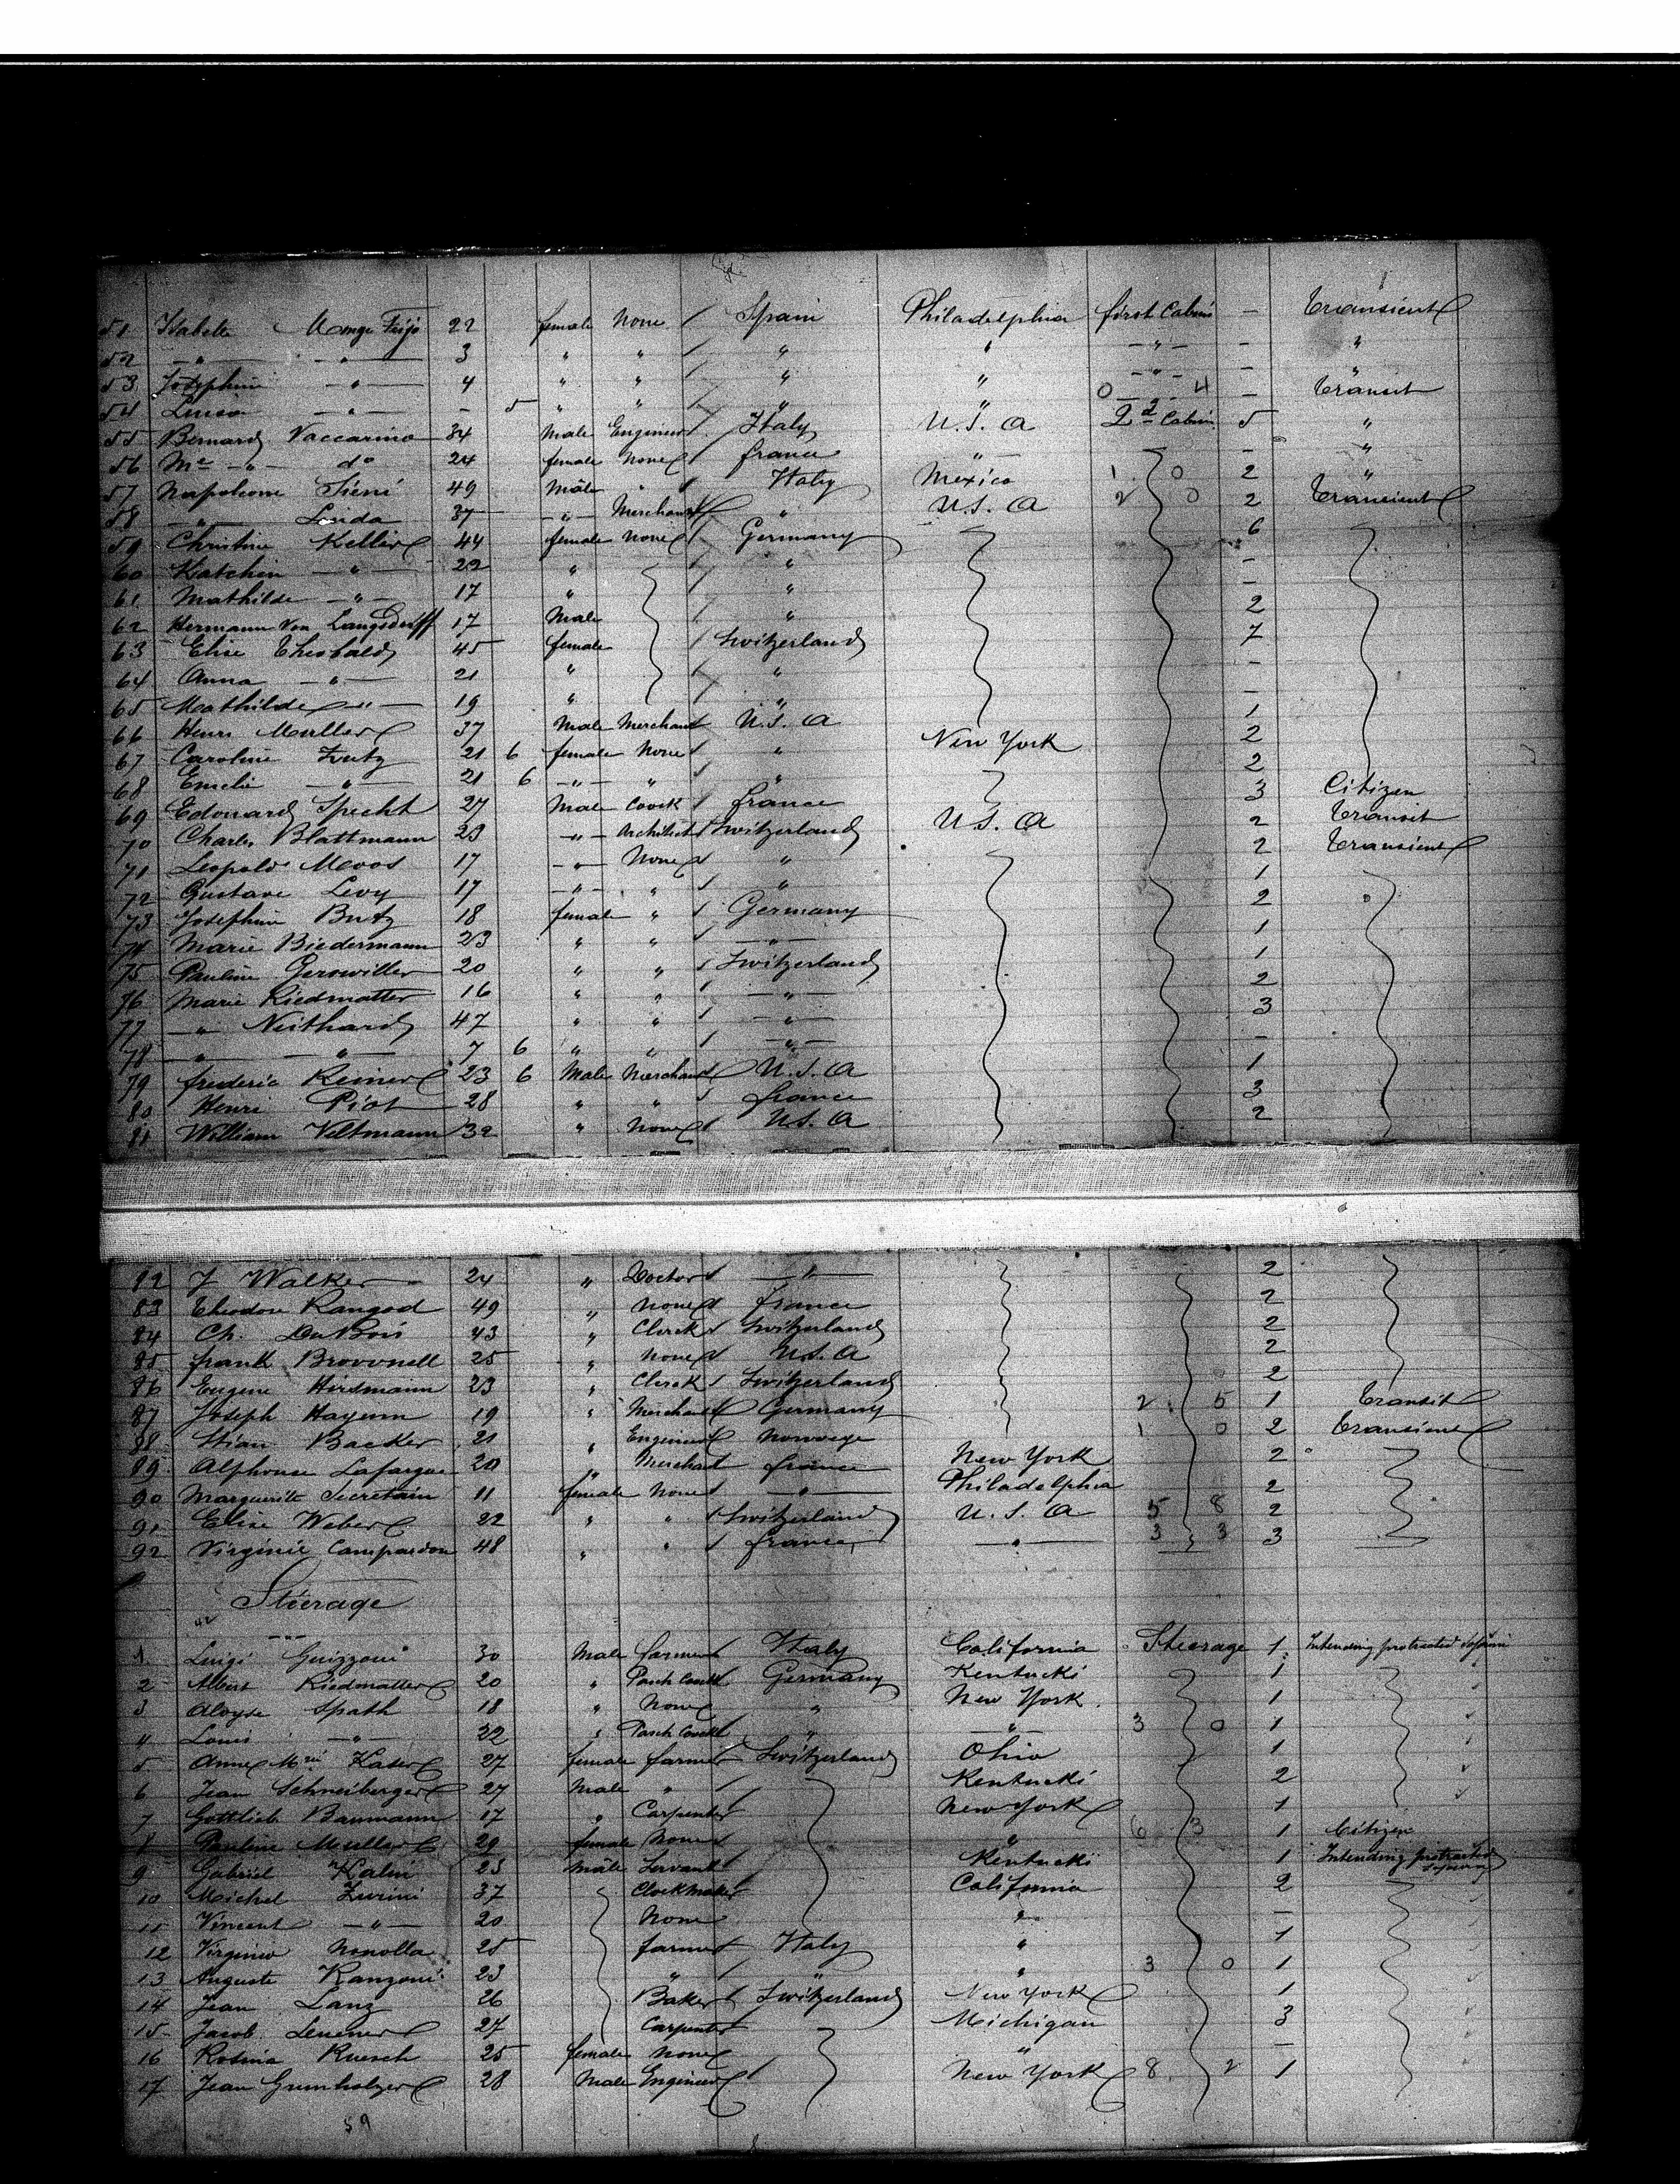 51 Isabele Monge Feijo 22 female None / Spain Philadelphia first Cabin - Transient
52 -"- -"- 3 " " / " " -"- - "
53 Josephine -"- 4 " " / " " -"- - "
54 Luisa -"- - 5 " " / " " 0 -"- 4 - Transit
55 Bernard Vaccarino 34 Male Engineer / Italy U.S.A 2d Cabin 5 "
56 Me -"- do 24 female None france -"- - "
57 Napoleone Sieni 49 Mâle " / Italy Mexico 1 0 2 "
58 -"- Linda 37 -"- Merchant " U.S.A 2 0 2 Transient
59 Christine Keller 44 female None Germany 6
60 Katchen -"- 22 " / " -
61 Mathilde -"- 17 " / " -
62 Hermann Von Langsdorff 17 Male / " 2
63 Elise Theobald 45 female / Switzerland 7
64 Anna -"- 21 " / " -
65 Mathilde -"- 19 " / " -
66 Henri Muller 37 Male Merchant U.S.A 1
67 Caroline 21 6 female None " New York 2
68 Emelie -"- 21 6 -"- " / " 2
69 Edouard Specht 27 Male Coock / france 3 Citizen
70 Charles Blattmann 23 -"- Architect Switzerland U.S.A 2 Transit
71 Leopold Moos 17 -"- None " 2 Transient
72 Gustave Levy 17 -"- " / " 1
73 Josephine Butz 18 female " / Germany 2
74 Marie Biedermann 23 " " / -"- 1
75 Pauline Gerowiller 20 " " / Switzerland 1
76 Marie Riedmatter 16 " " / -"- 2
77 -"- Neithard 47 " " / -"- 3
78 -"- -"- 7 6 " " / -"- -
79 frederic Reiner 23 6 Male Merchant U.S.A 1
80 Henri Piot 28 " " / france 3
81 William Veltmann 32 " None U.S.A 2
82 J Walker 24 " Doctor -"- 2
83 Theodore Rangod 49 " None france 2
84 Ch. DuBois 43 " Clerck Switzerland 2
85 frank Brovvnell 25 " None U.S.A 2
86 Eugene Hirdmann 23 " Clerck / Switzerland 2
87 Joseph Hayem 19 " Merchant Germany 2 5 1 Transit
88 Stian Backer 21 " Engineer Norvege 1 0 2 Transient
89 Alphonse Lafargue 20 " Merchant france New York 2
90 Marguerite Secretain 11 female None -"- Philadelphia 2
91 Elise Weber 22 " " / Switzerland U.S.A 5 8 2
92 Virginie Campardon 48 " " / france -"- 3 3 3
Steerage
1 Luigi Guizzoni 30 Male farmer Italy California Steerage 1 Intending protracted
2 Albert Riedmatter 20 " Germany Kentucki 1
3 Aloyse Spath 18 " None " New York 1
4 Louis -"- 22 " " -"- 3 0 1
5 Anne Mrie Kaser 27 female farmer Switzerland Ohio 1
6 Jean Schneiberger 27 Male " / Kentucki 2
7 Gottlieb Baumann 17 " Carpenter New York 1
8 Pauline Muller 29 female None " 6 3 1 Citizen
9 Gabriel Kalini 23 Mâle Servant Kentucki 1 Intending protracted
10 Michel Zurini 37 Clockmaker California 2
11 Vincent -"- 20 None " -
12 Virginio Nonolla 25 farmer Italy " 1
13 Auguste Ranzoni 23 " / " " 3 0 1
14 Jean Lanz 26 Baker Switzerland New York 1
15 Jacob 27 Carpenter Michigan 3
16 Rosina Ruesch 25 female None " -
17 Jean Grumholzer 28 Male Engineer New York 8 2 1
59